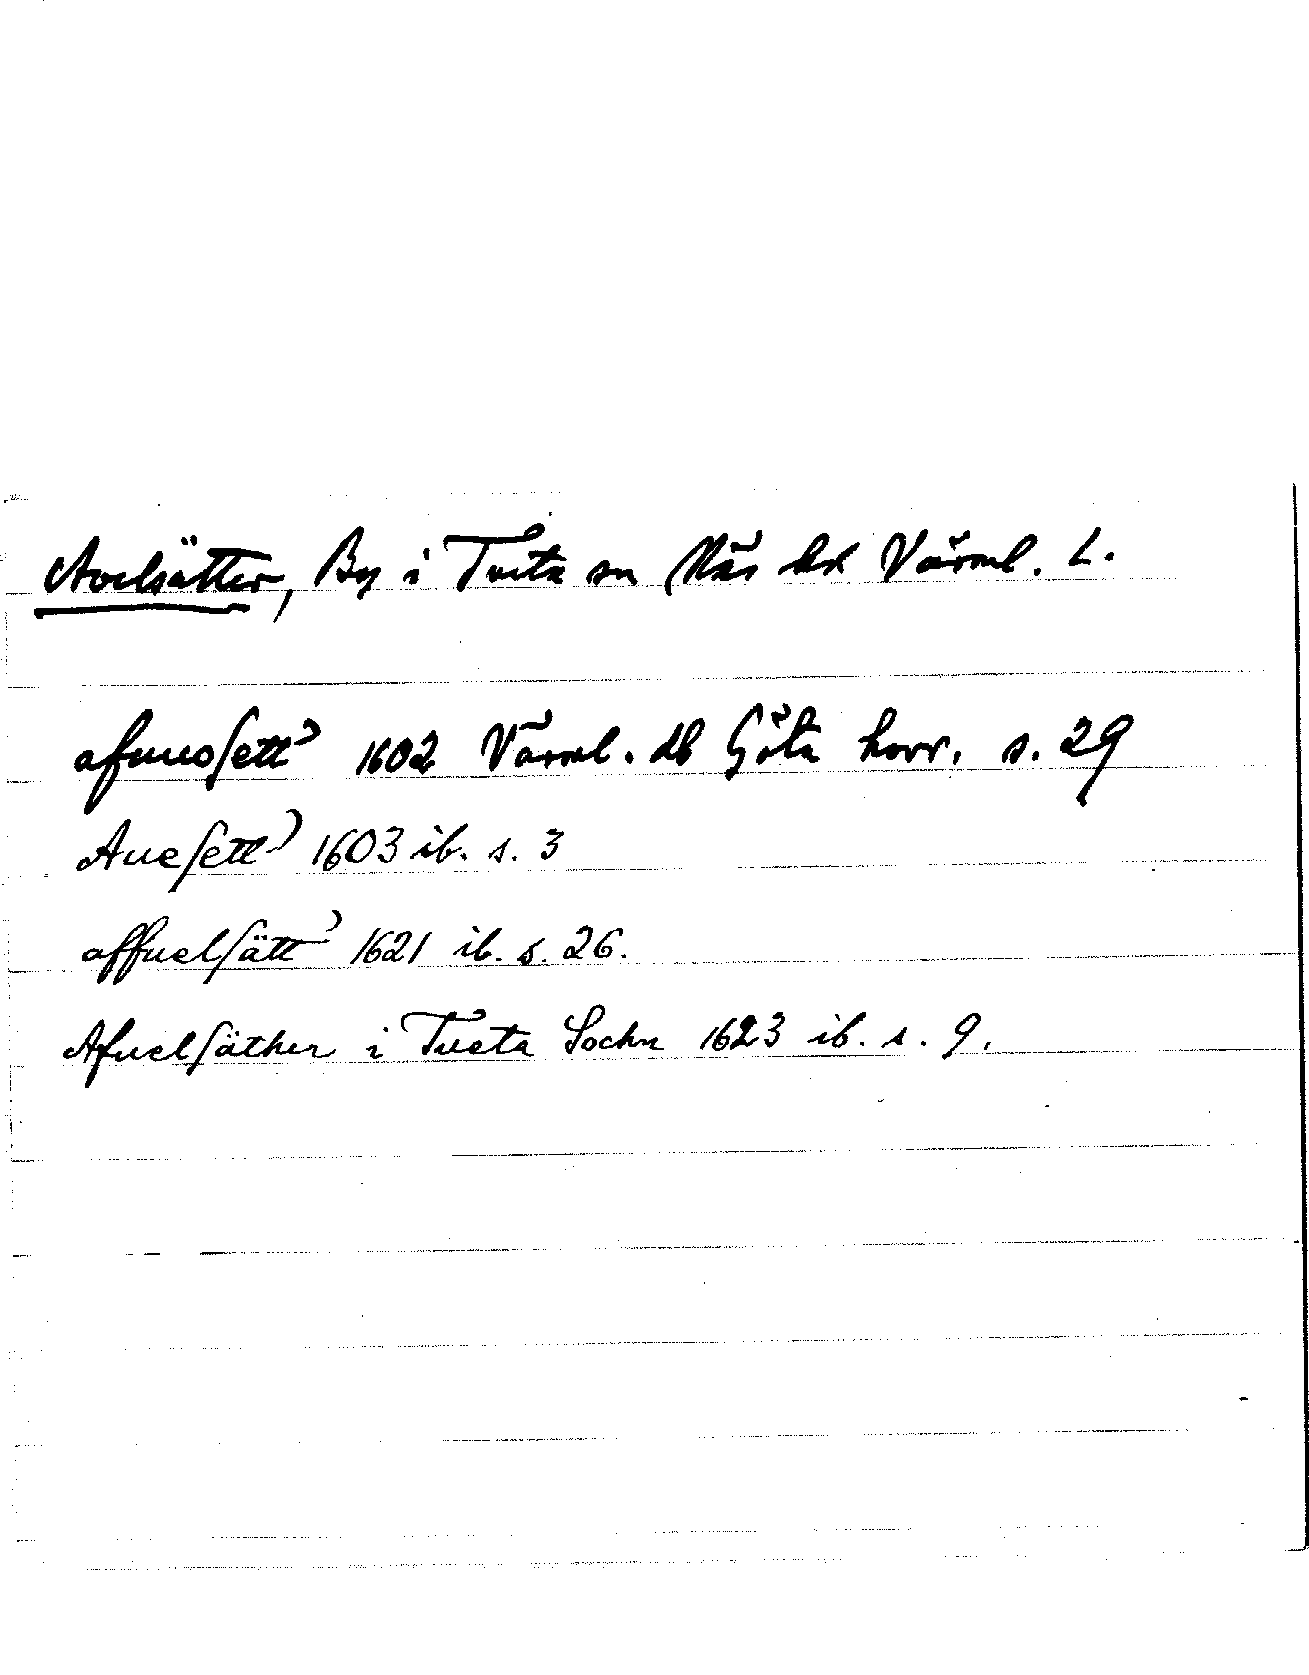 Avelsätter, By i Tveta sn Näs hd Värml. L.
afuuosett 1602 Värml. db Göta hovr. s. 29
Auesett 1603 ib. s. 3
affuelsätt 1621 ib. s. 26.
Afuelsäther i Tueta Sochn 1623 ib. s. 9.